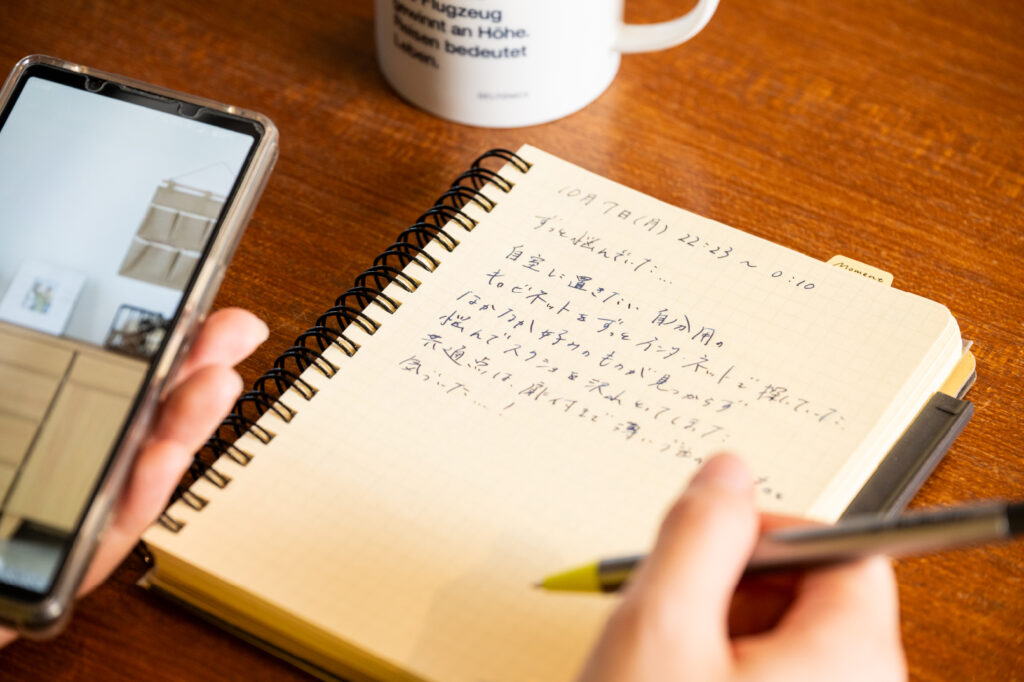 Flugzeug
gewinnt an Höhe.
Reisen bedeutet
Leben.
10月7日(月) 22:23〜0:10
Moment
ずっと悩んでいた…
自室に置きたい自分用の
キャビネットをずっとインターネットで探していた
なかなか好みのものが見つからず
悩んでスクショを沢山してしまった
共通点は、扉付きで薄い
気づいた…!